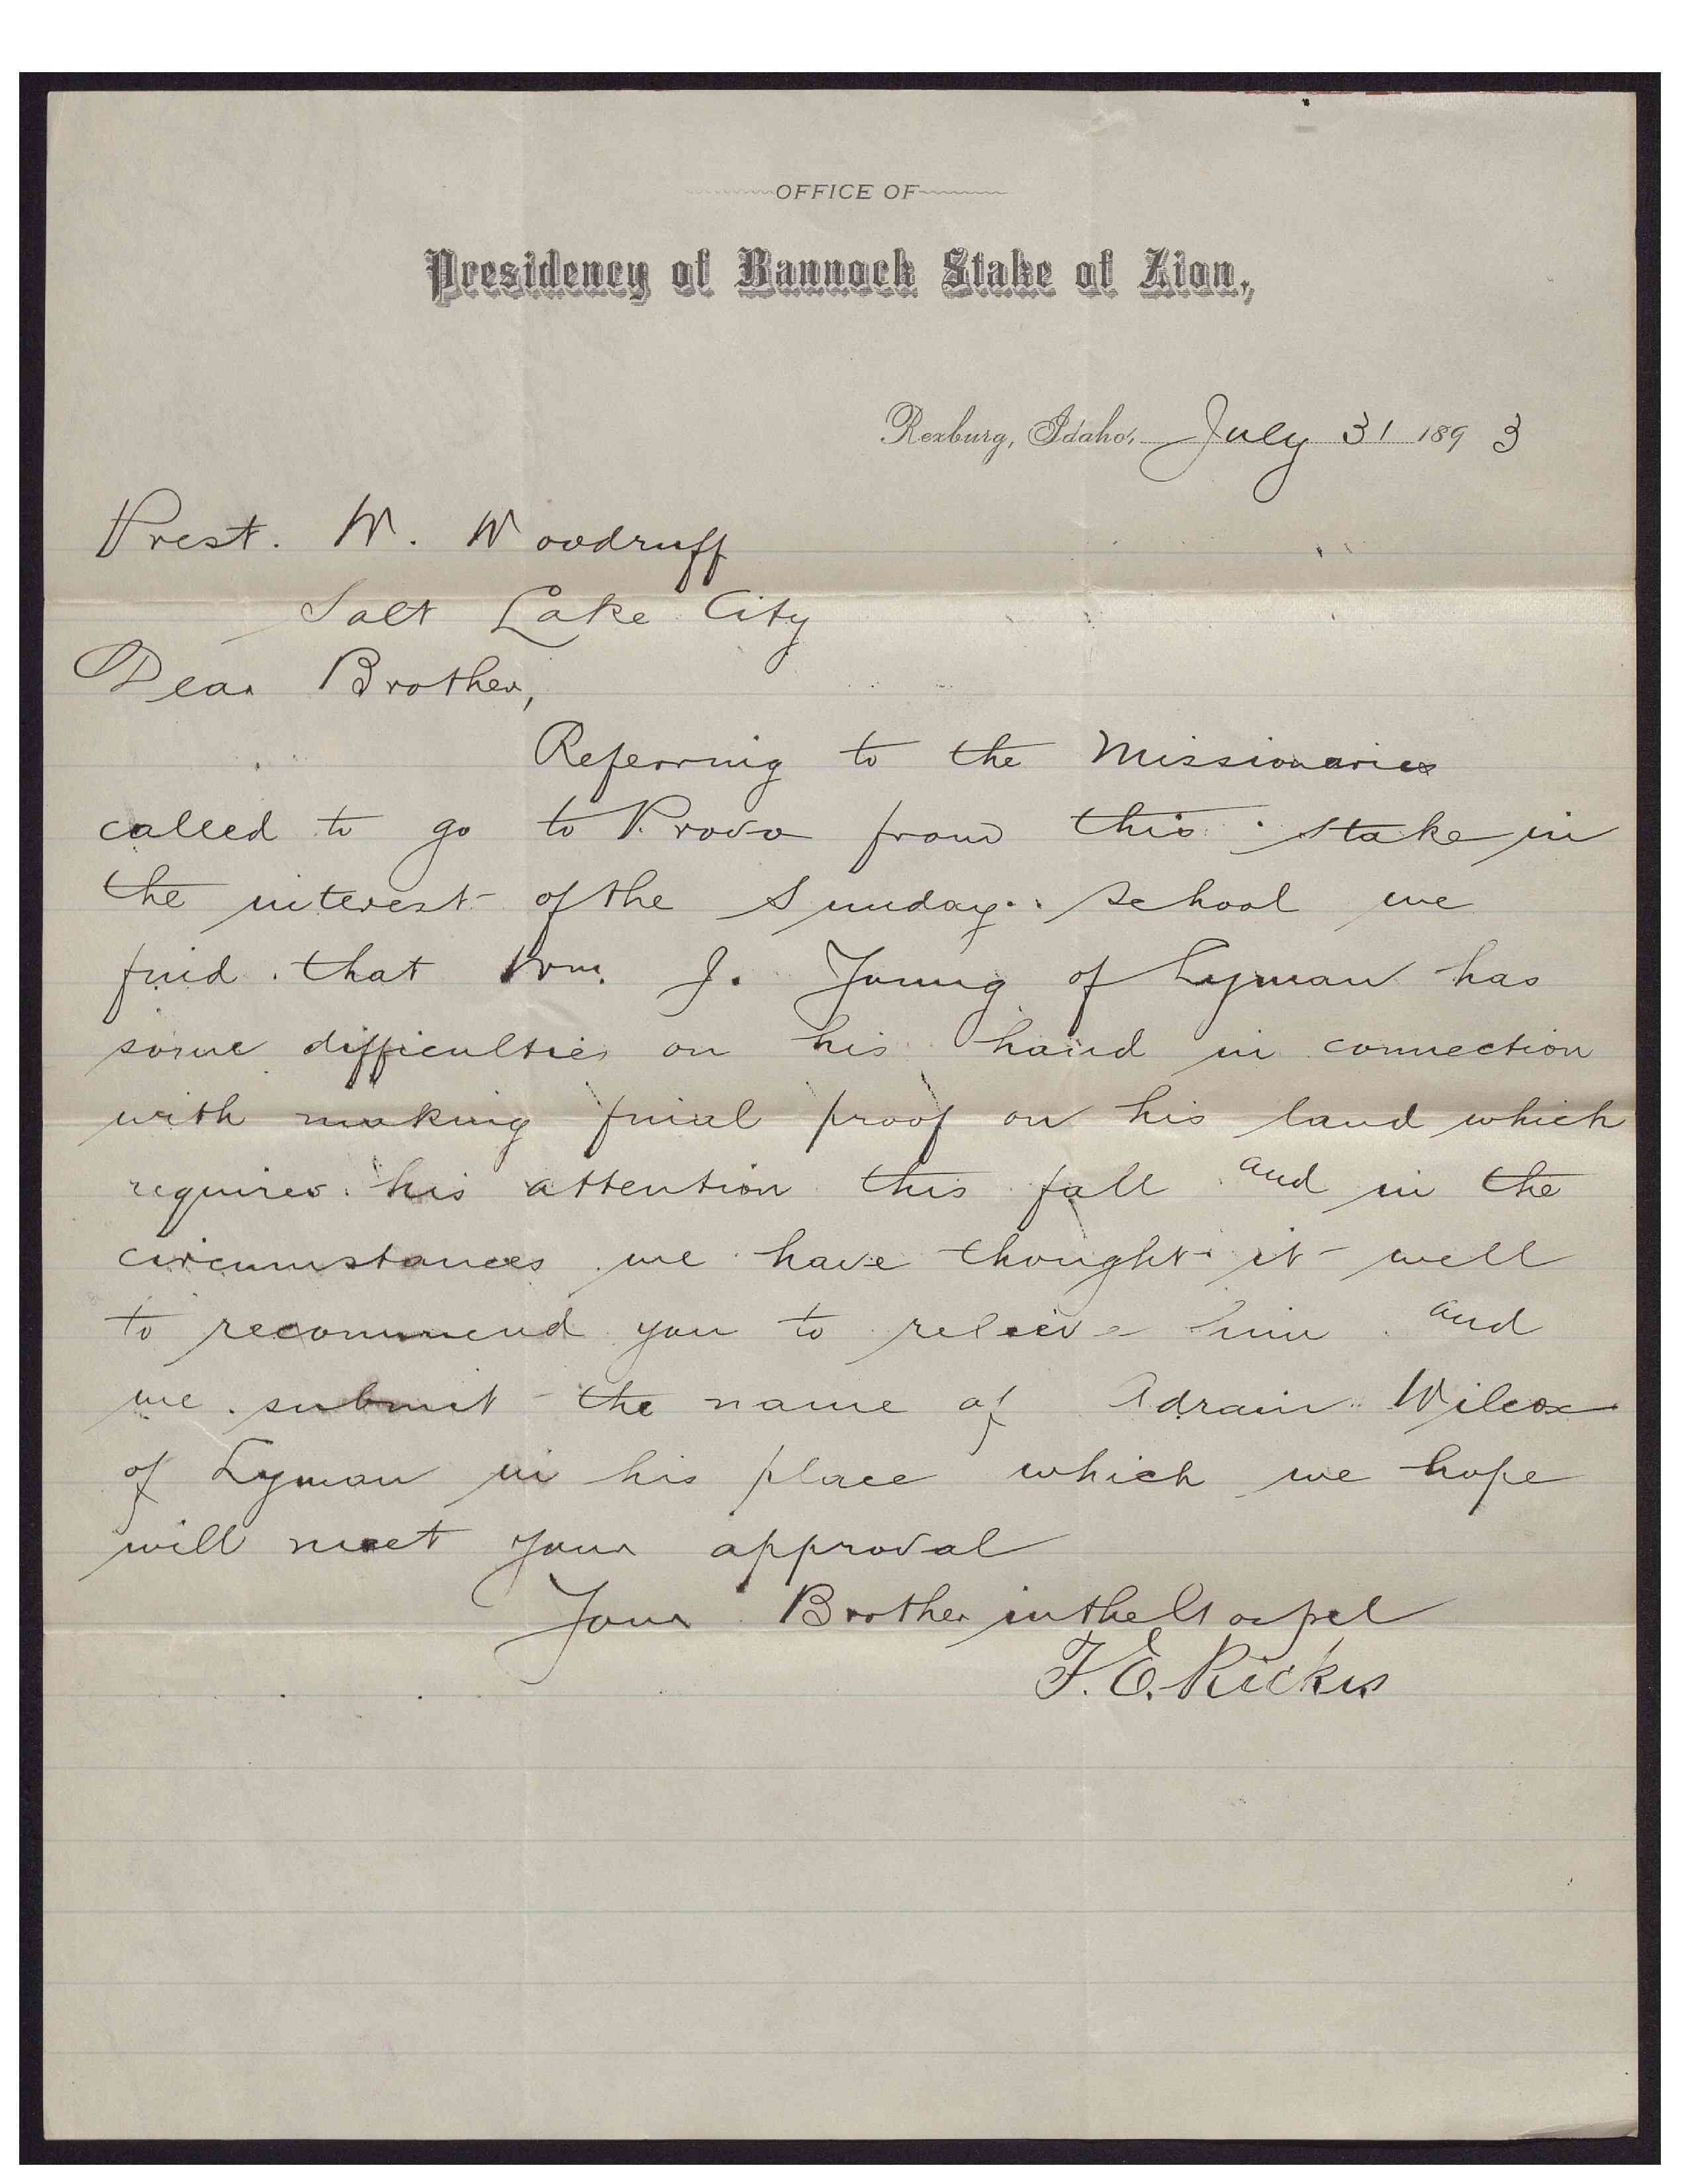 OFFICE OF
Presidency of Bannock Stake of Zion,
Rexburg, Idaho, July 31 1893
Prest. W. Woodruff
Salt Lake City
Dear Brother,
Referring to the Missionaries
called to go to Provo from this stake in
the interest of the Sunday school we
find that Wm. J. Young of Lyman has
some difficulties on his hand in connection
with making final proof on his land which
requires his attention this fall and in the
circumstances we have thought it well
to recommend you to releive him and
we submit the name of Adrain Wilcox
of Lyman in his place which we hope
will meet your approval
Your Brother in the Gospel
T. E. Ricks